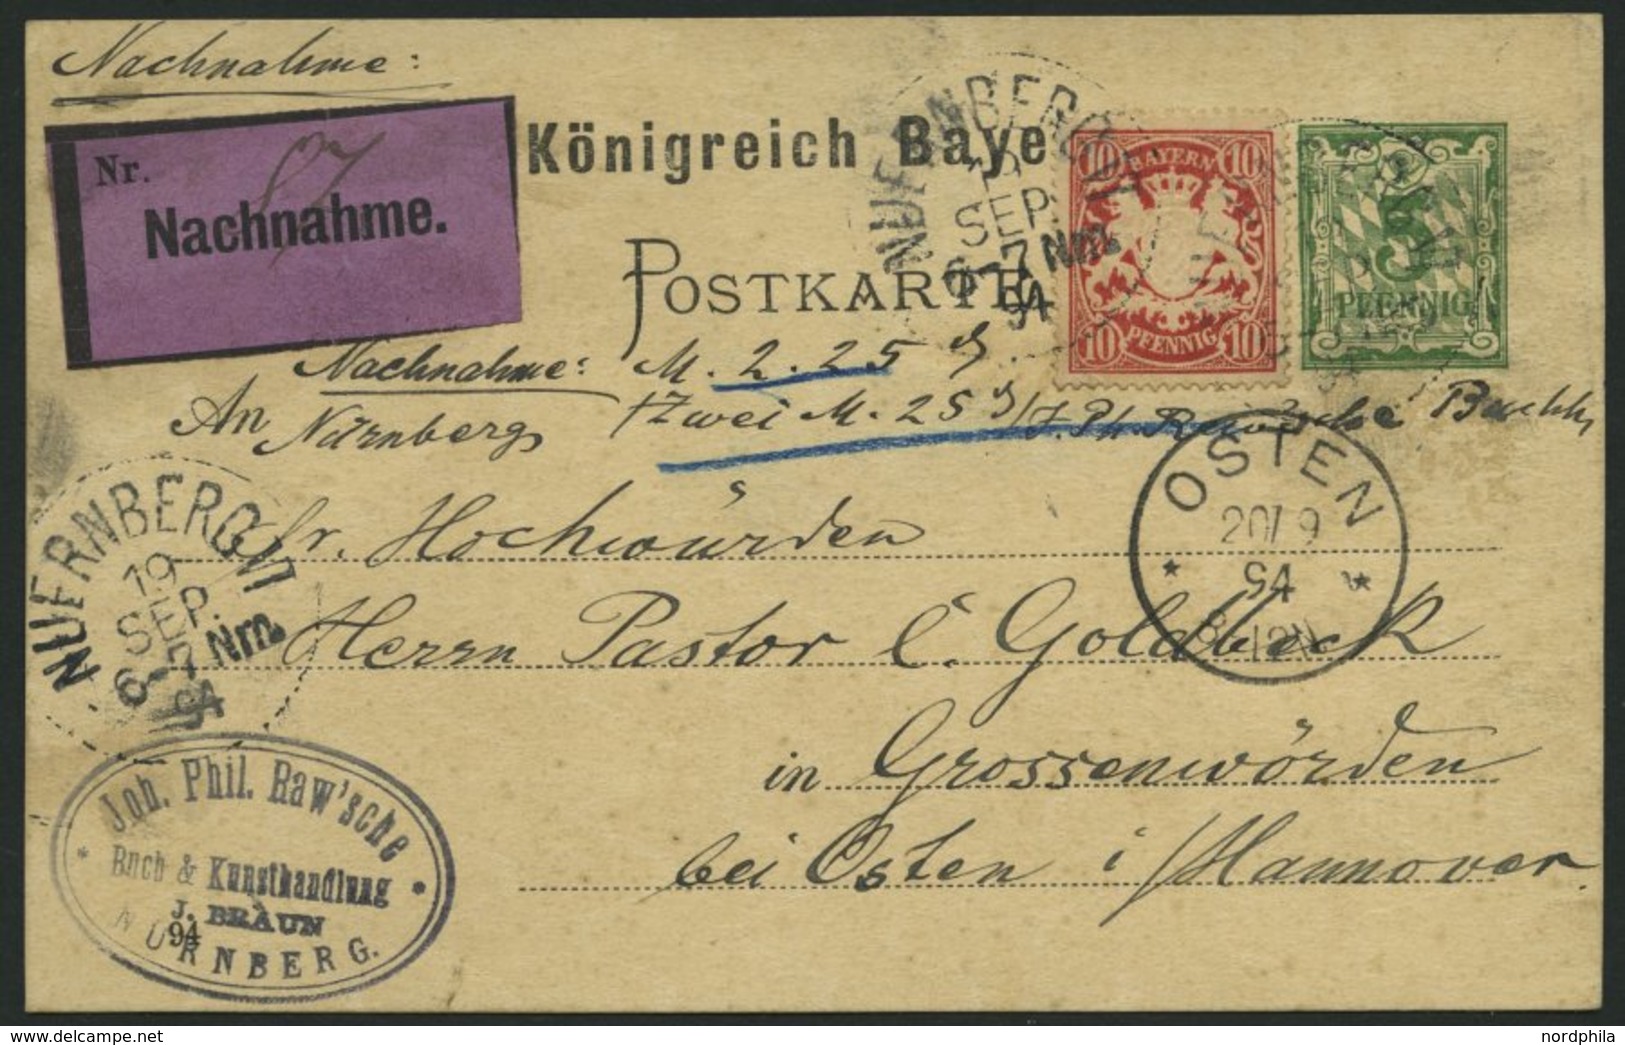 Nachnahme:
Nr. 87
Nachnahme.
Königreich Baye
POSTKARTE
NUERNBERG VI
19
SEP.
6-7 Nm.
94
10 BAYERN 10
10 PFENNIG 10
5
PFENNIG
Nachnahme: M. 2.25 ₰.
An Nürnberg /Zwei M. 25 ₰/ J. Ph. Raw'sche Buchh
Sr. Hochwürden
Herrn Pastor C. Goldbeck
in Grossenwörden
bei Osten i/Hannover.
OSTEN
20/ 9
94
8-12N
NUERNBERG VI
19
SEP.
6-7 Nm.
94
Joh. Phil. Raw'sche
Buch & Kunsthandlung
J. BRAUN
NÜRNBERG.
94
(c) www.philasearch.com
nordphila